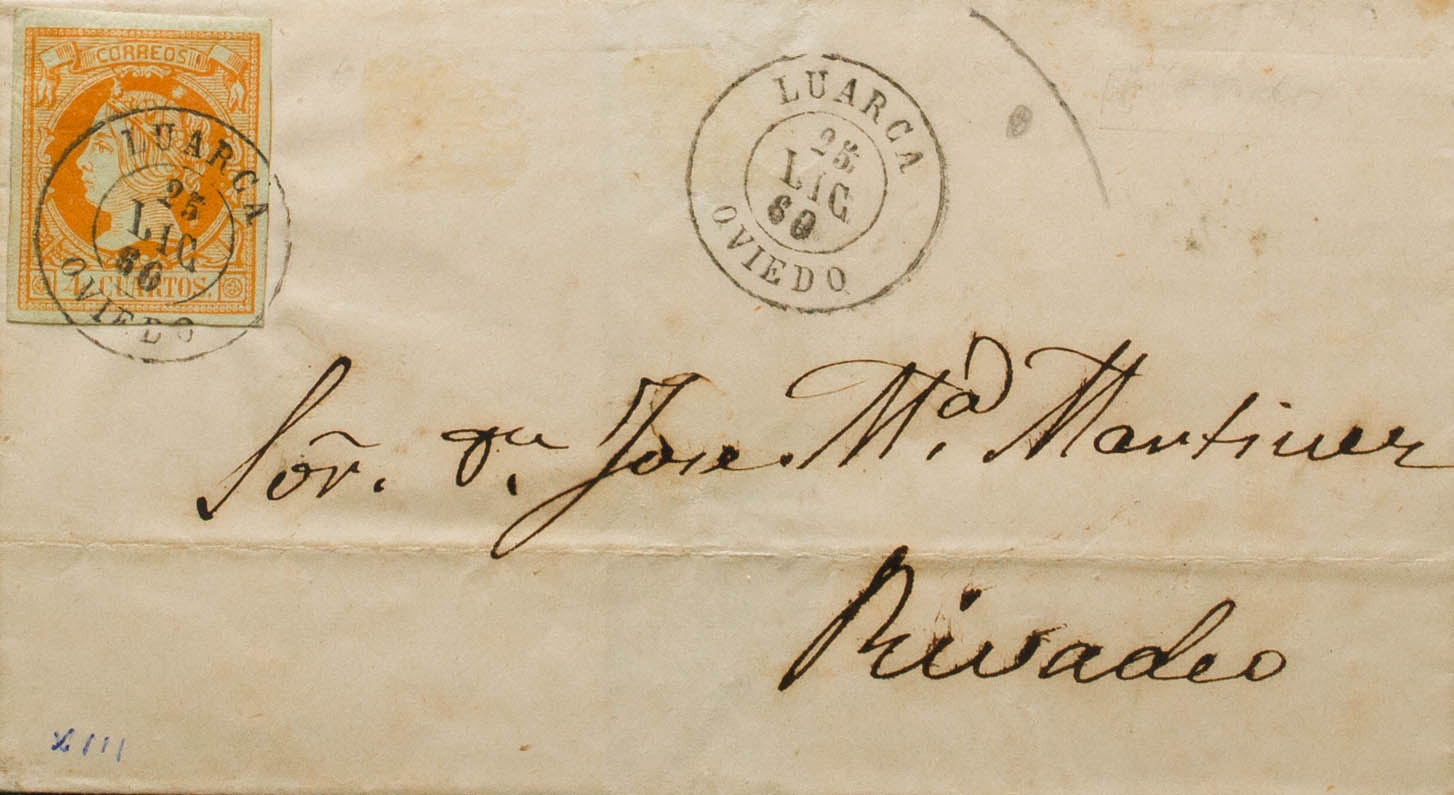 CORREOS
4 CUARTOS.
LUARCA
25
LIG
60
OVIEDO
LUARCA
25
LIG
60
OVIEDO
Sor. Dn. Jose Ma. Martinez
Rivadeo